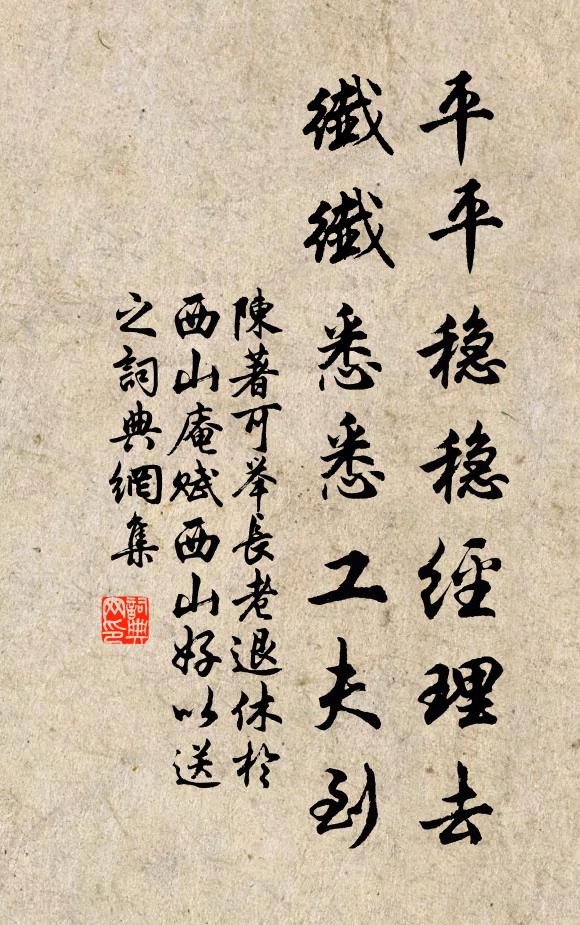 平平稳稳經理去
纖纖悉悉工夫到
陳著可举長老退休於
西山庵赋西山好以送
之詞典網集
詞典
网印